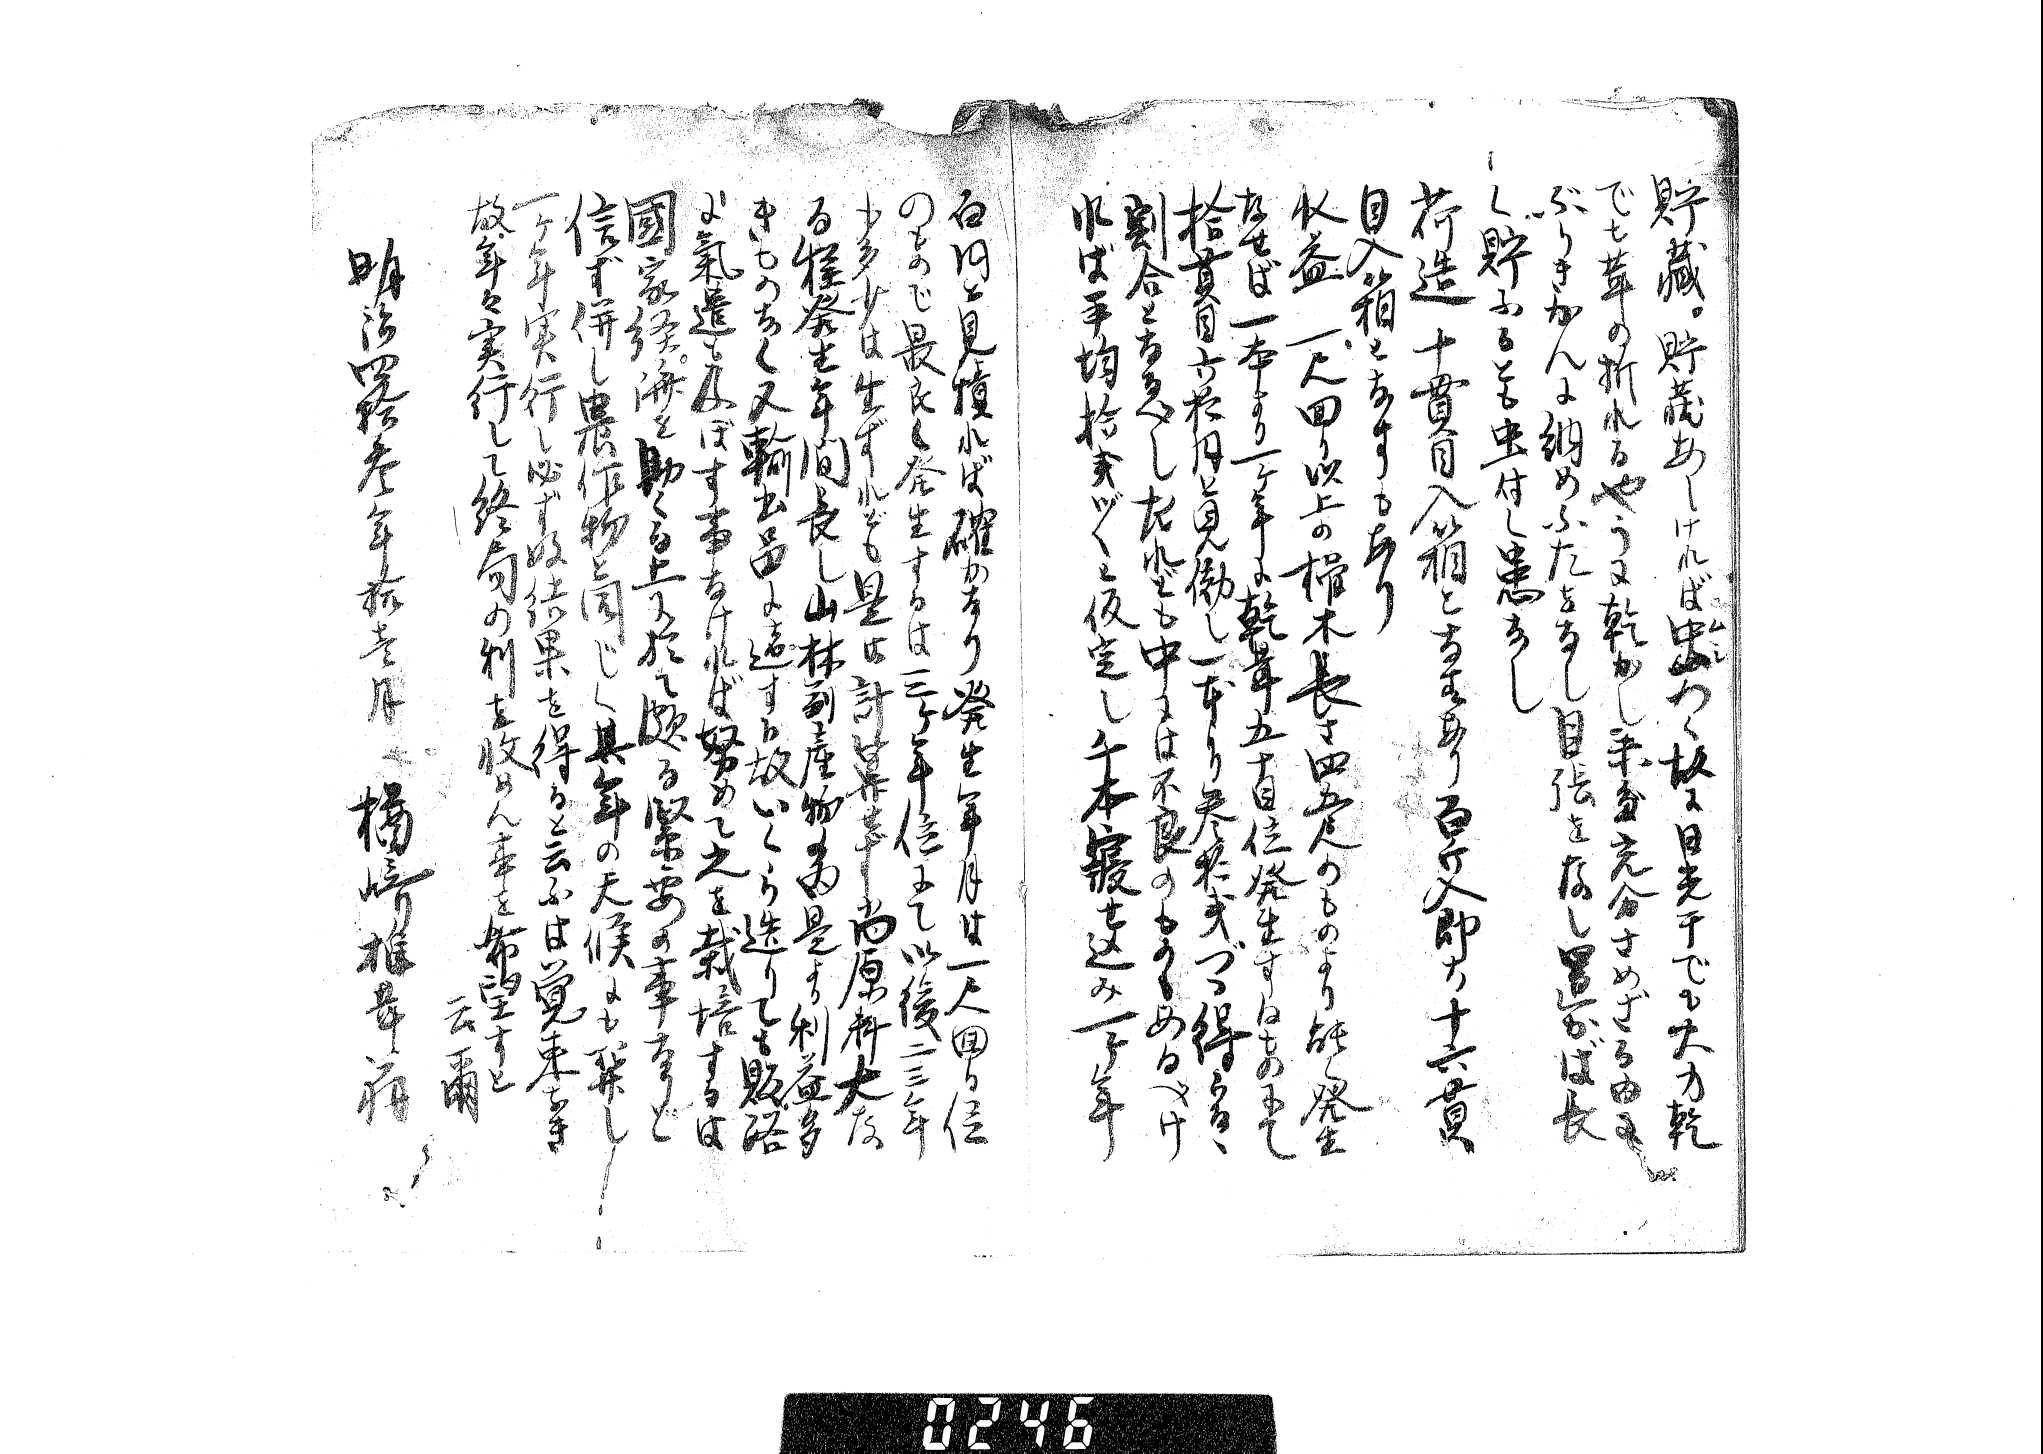 貯藏。貯蔵あしければ虫わく故に日光干でも火力乾
ムシ
でも茸の折れるやうに乾かし
充分さめざる内に
ぶりきかんに納めふたをなし目張を為し置かば長
く貯ふるとも虫付し患なし
荷造 十貫目入箱となすあり百斤入即六十六貫
目入箱となすもあり
收益 一尺回り以上の榾木長さ四五尺のものより能発生
なせば一本より一ヶ年に乾茸五十目位発生するものにて
拾貫目六拾円と見做し一本より参拾弐づつ得らるゝ
割合となるべしされども中には不良のものもあるべけ
れば平均拾弐づゝと仮定し千本寝せ込み一ヶ年
百円と見積れば確かなり発生年月は一尺回り位
のもので最良く発生するは三ヶ年位にて以後二三年
も多少は生ずれども是は計算せず尚原料大な
る程発生年間長し山林副産物の内是より利益多
きものなく又輸出品に適する故いくら造りても販路
に氣遣も及ぼす事なければ努めて之を栽培するは
國家経済を助くる上に於て頗る緊要の事なりと
信ず併し農作物と同じく其年の天候にも関し
一ヶ年実行し必ず好結果を得ると云ふは覚束なき
故年々実行して終局の利を收めん事を希望すと
云爾
明治四拾参年拾壱月 楢崎椎茸